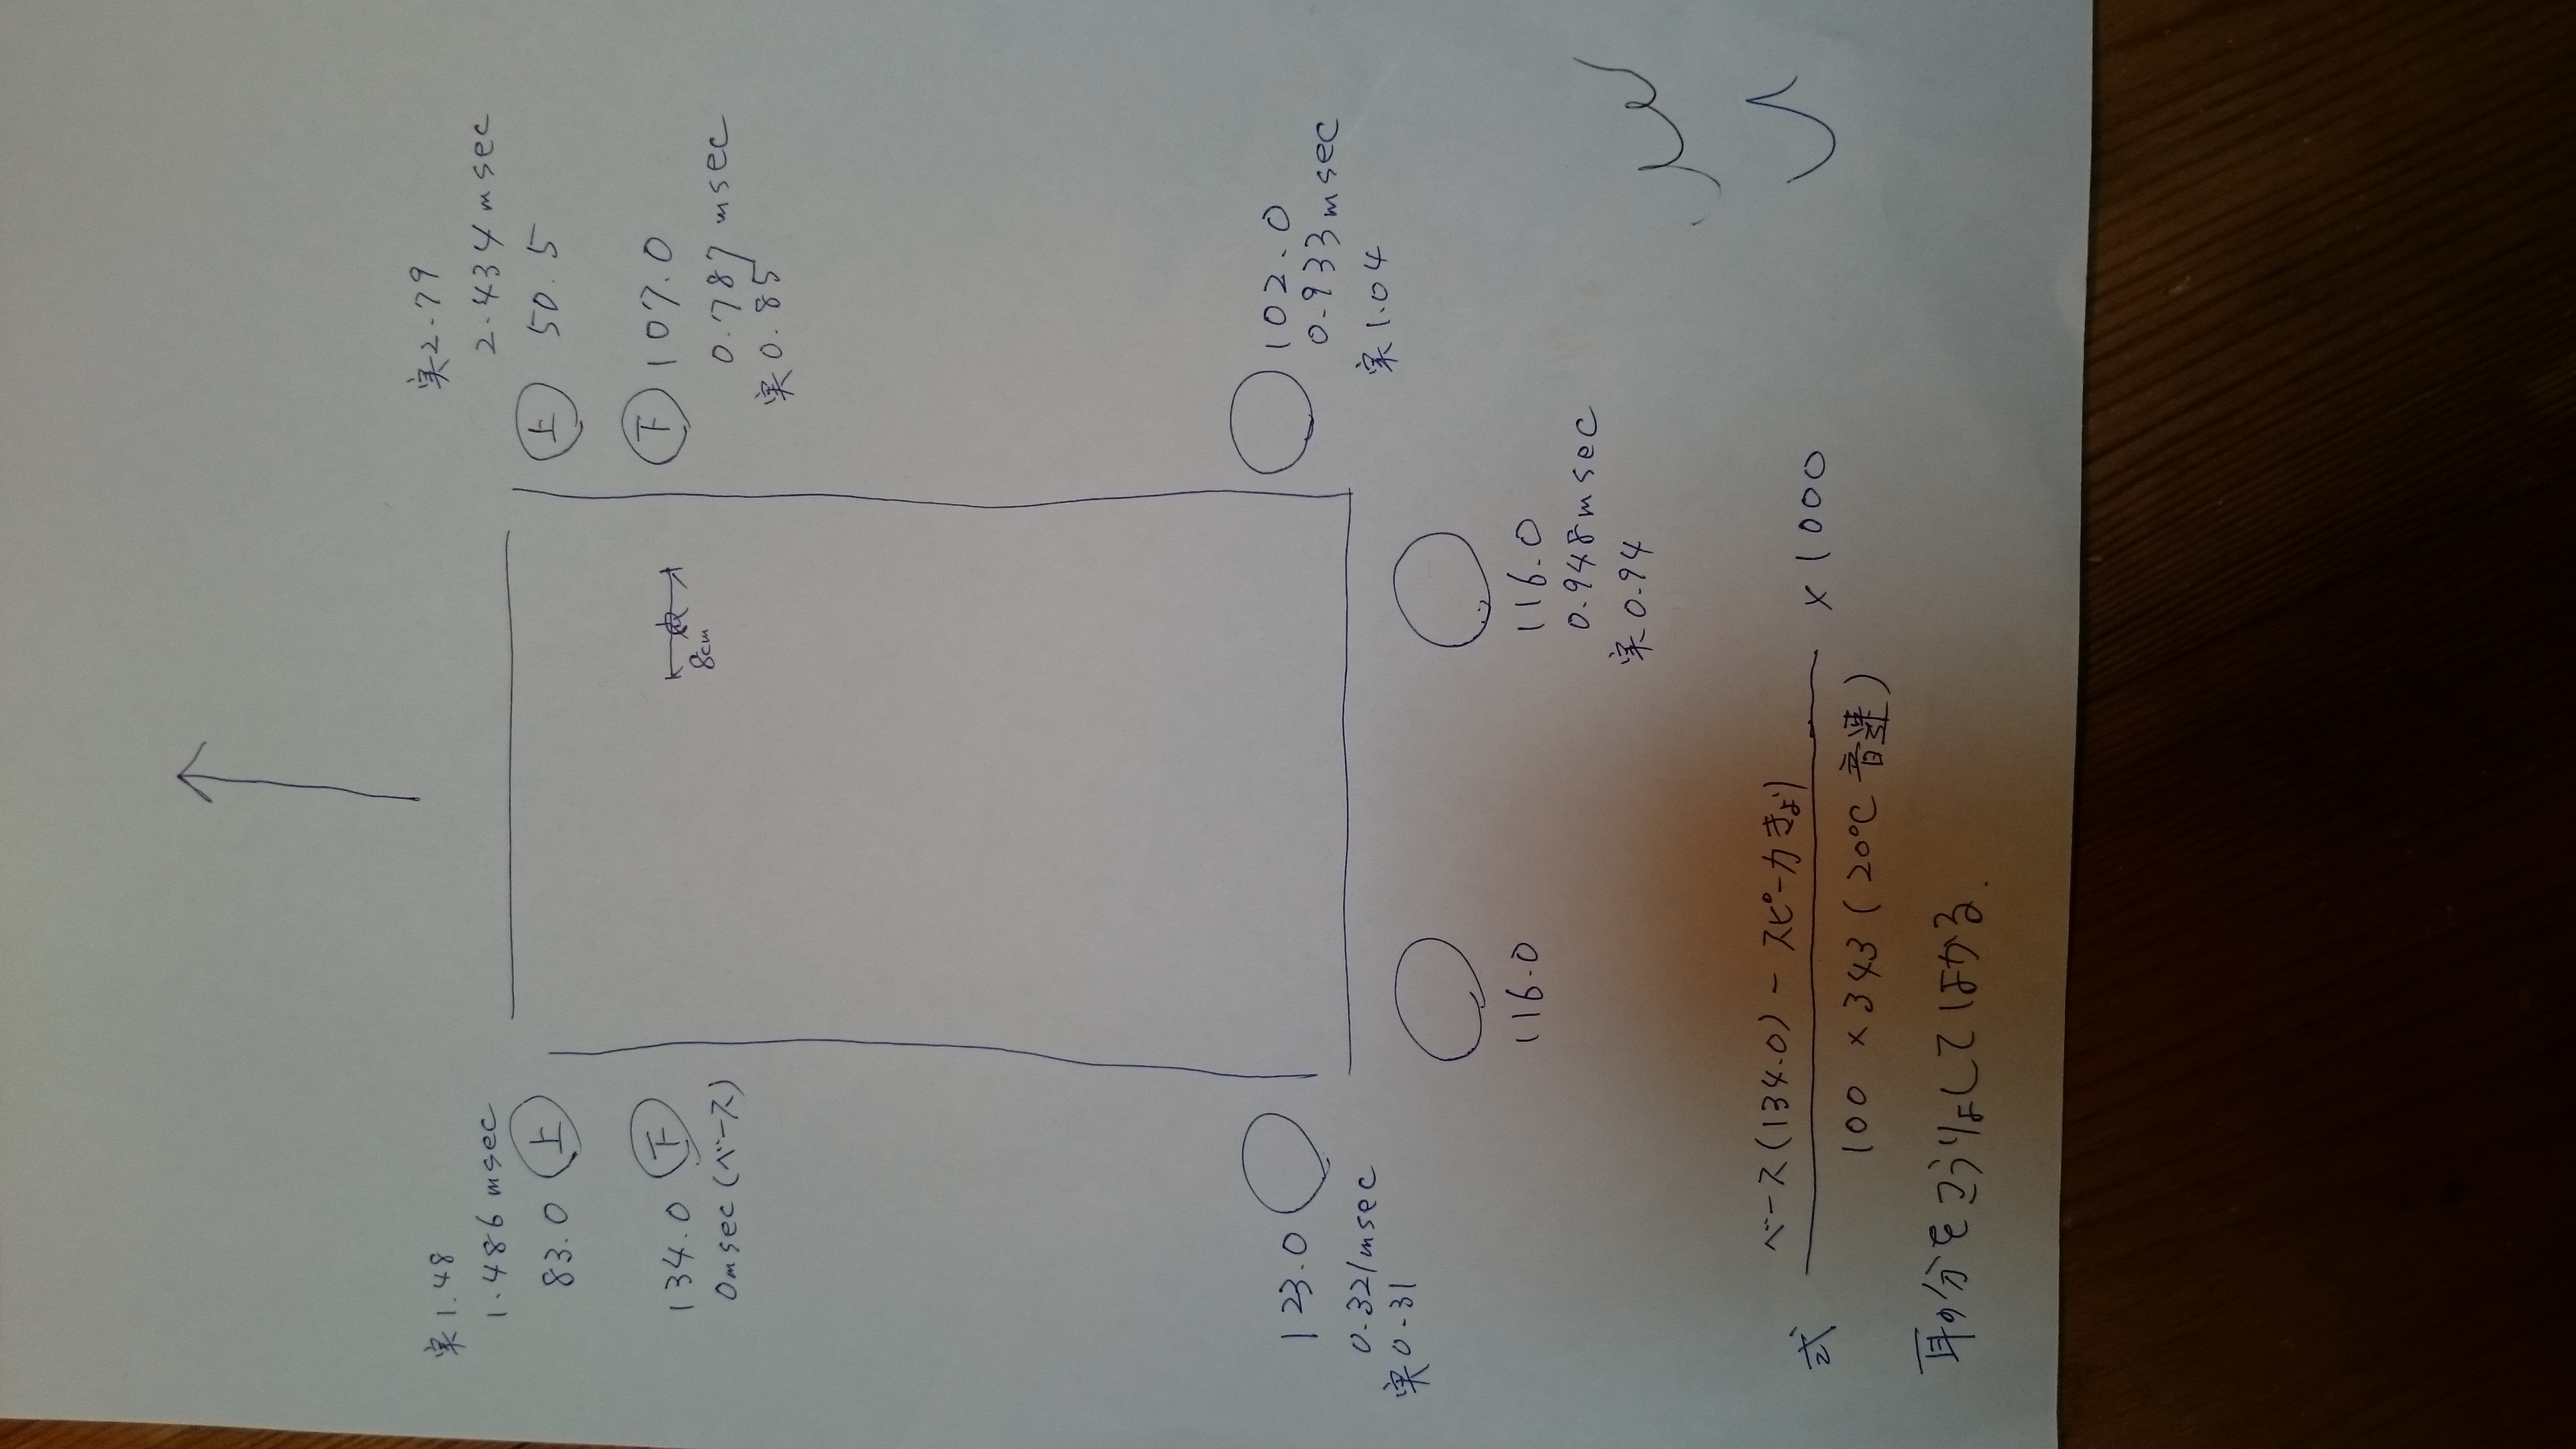 実1.48
1.486msec
83.0 上
134.0 下
0msec(ベース)
実2.79
2.434msec
上 50.5
下 107.0
0.787msec
実0.85
8cm
123.0
0.321msec
実0.31
102.0
0.933msec
実1.04
116.0
116.0
0.948msec
実0.94
式
ベース(134.0)-スピーカきょり
100×343(20℃音速)
×1000
耳の分をこうりょしてはかる.